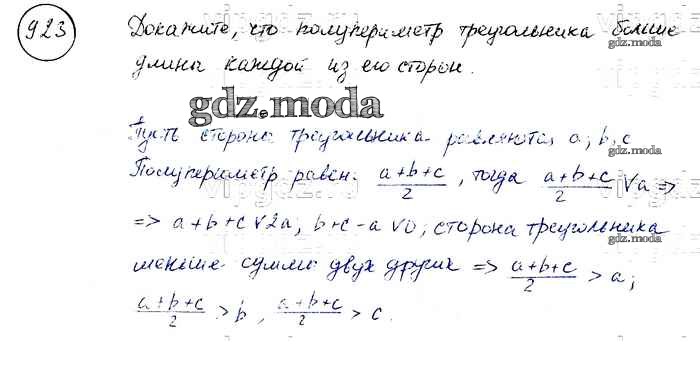 923
Докажите, что полупериметр треугольника больше
длины каждой из его сторон.
gdz.moda
Пусть стороны треугольника равняются a, b, c
Полупериметр равен a+b+c/2, тогда a+b+c/2 ∨ a =>
=> a+b+c ∨ 2a; b+c-a ∨ 0; сторона треугольника
меньше суммы двух других => a+b+c/2 > a;
a+b+c/2 > b, a+b+c/2 > c.